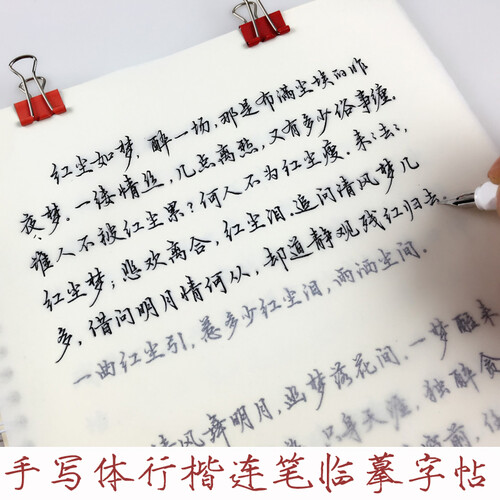 红尘如梦，醉一场，那是布满尘埃的昨
夜梦。一缕情丝，几点离愁，又有多少俗事缠。
谁人不被红尘累？何人不为红尘瘦。来来去去，
红尘梦；悲欢离合，红尘泪。追问清风梦几
多，借问明月情何从，却道静观残红归去。
一曲红尘引，惹多少红尘泪，雨洒尘间。
清风舞明月，幽梦落花间。一梦醒来
只身天涯，独醉
手写体行楷连笔临摹字帖